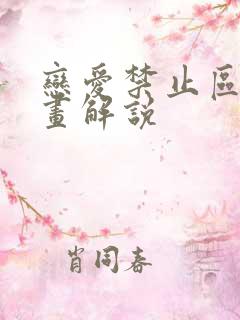 戀愛禁止區
畫解說
肖同春